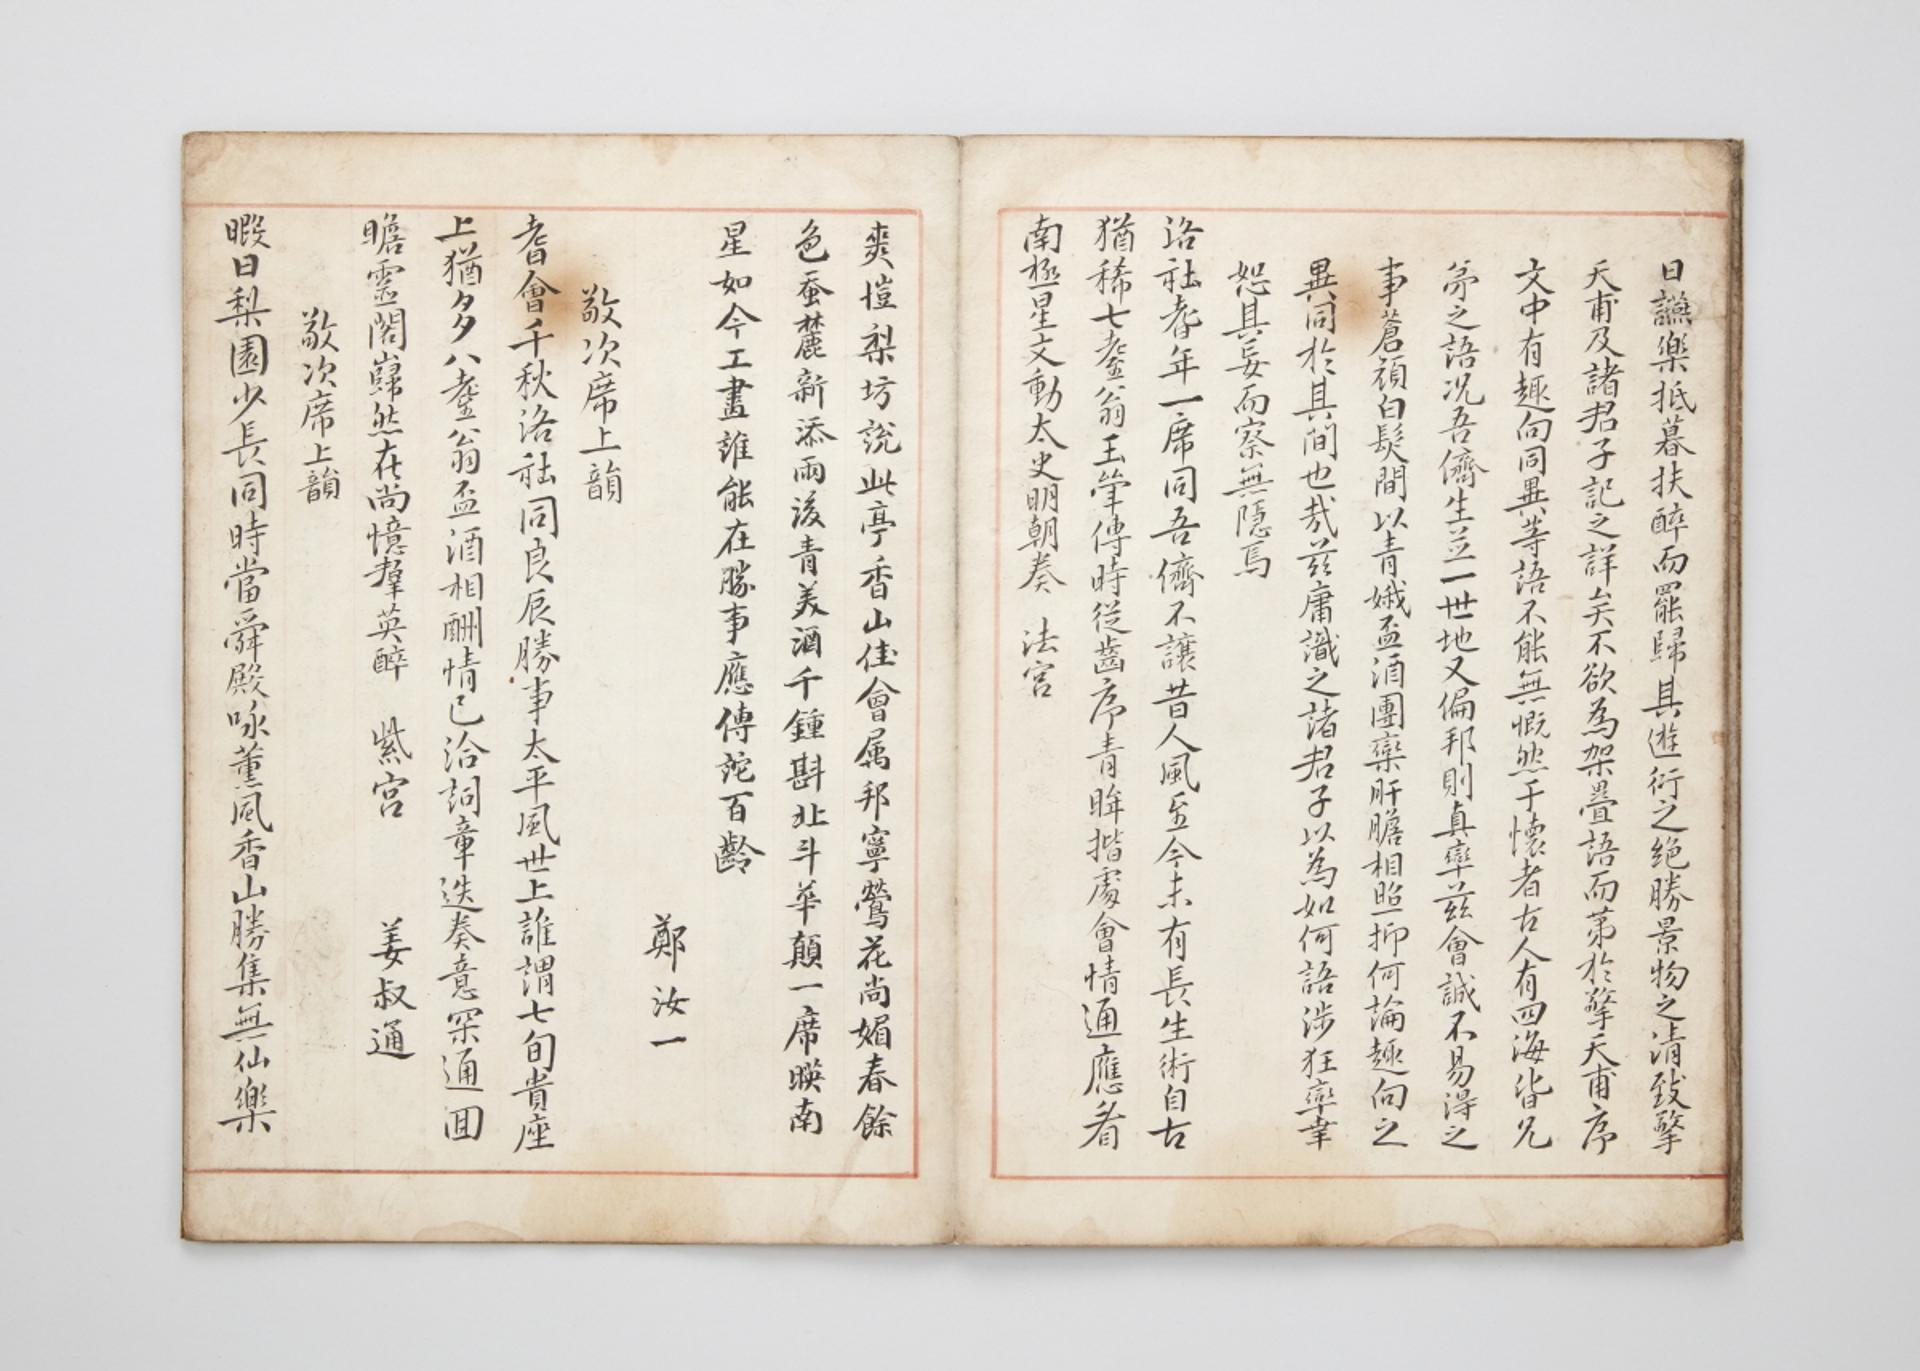 日讌樂抵暮扶醉而罷歸其遊衍之絶勝景物之清致擎
天甫及諸君子記之詳矣不欲為架疊語而第於擎天甫序
文中有趣向同異等語不能無慨然于懷者古人有四海皆兄
弟之語况吾儕生並一世地又偏邦則真率茲會誠不易得之
事蒼顔白髮間以青娥盃酒團欒肝膽相照抑何論趣向之
異同於其間也哉茲庸識之諸君子以為如何語涉狂率幸
恕其妄而察無隱焉
洛社耆年一席同吾儕不讓昔人風至今未有長生術自古
猶稀七耋翁玉笋傳時從齒序青眸揩處會情通應看
南極星文動太史明朝奏 法宮
爽愷梨坊說此亭香山佳會属邦寧鶯花尚媚春餘
色蚕麓新添雨後青美酒千鍾斟北斗華顛一席暎南
星如今工畫誰能在勝事應傳詫百齡
鄭汝一
敬次席上韻
耆會千秋洛社同良辰勝事太平風世上誰謂七旬貴座
上猶多八耋翁盃酒相酬情已洽詞章迭奏意罙通囬
瞻靈閣巋然在尚憶羣英醉 紫宮 姜叔通
敬次席上韻
暇日梨園少長同時當舜殿咏薰風香山勝集無仙樂